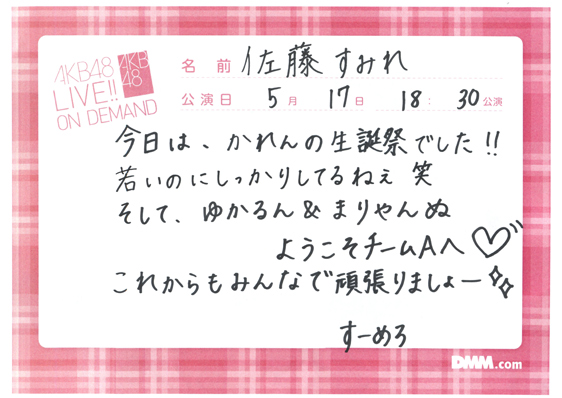 AKB48
LIVE!!
ON DEMAND
AKB
48
名前 佐藤すみれ
公演日 5月 17日 18: 30公演
今日は、かれんの生誕祭でした!!
若いのにしっかりしてるねぇ 笑
そして、ゆかるん&まりやんぬ
ようこそチームAへ♡
これからもみんなで頑張りましょー
すーめろ
DMM.com